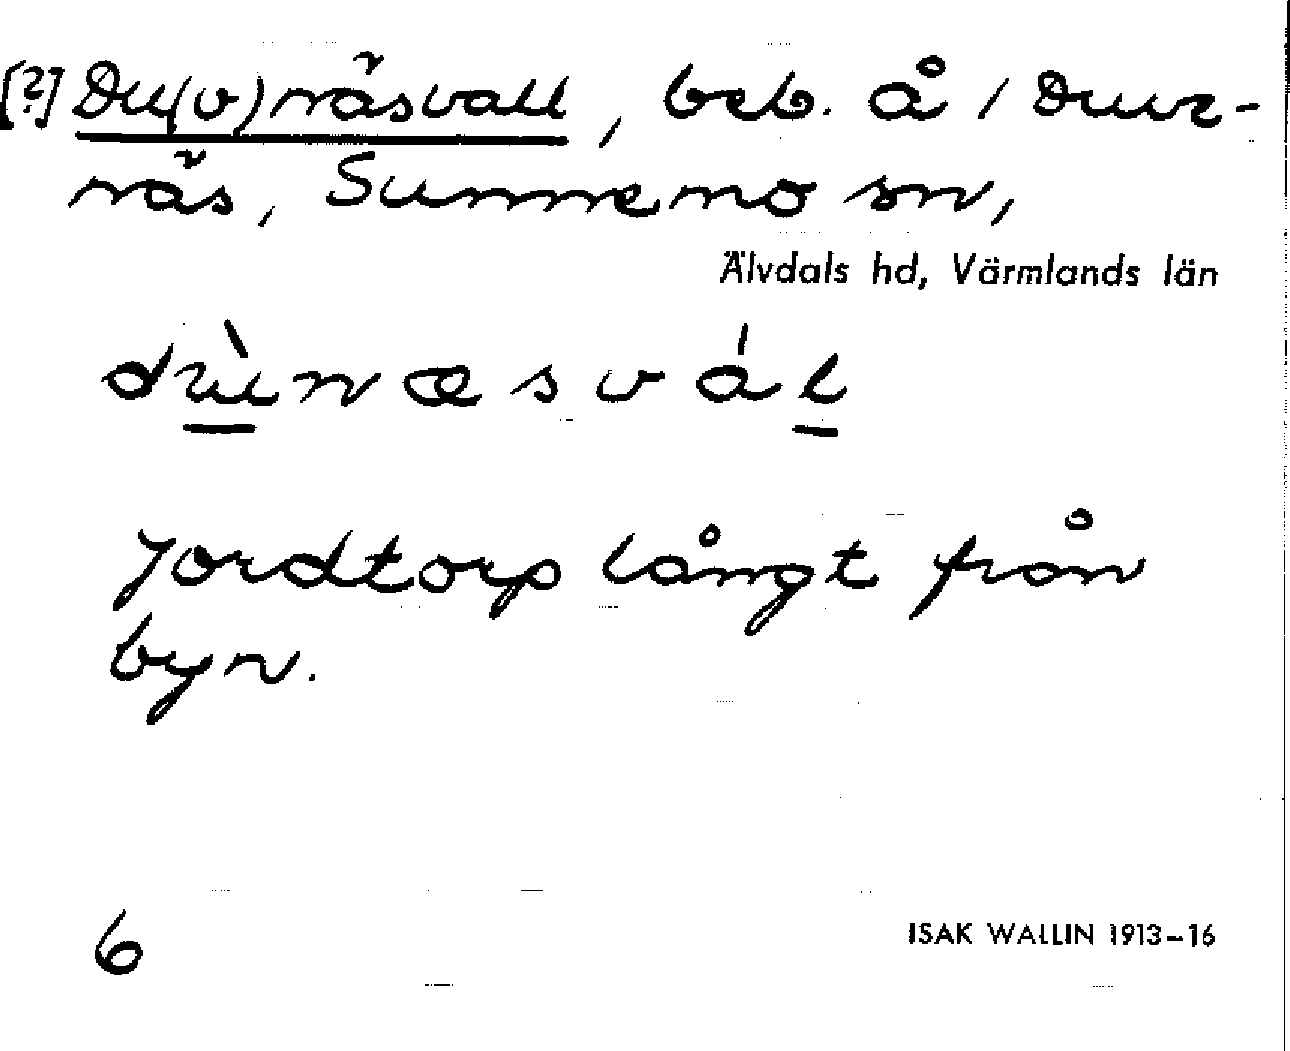 [?] Du(v)näsvall, beb. å / Duve-
näs, Sunnemo sn,
Älvdals hd, Värmlands län
dùnæsvál
Jordtorp långt från
byn.
6
ISAK WALLIN 1913–16